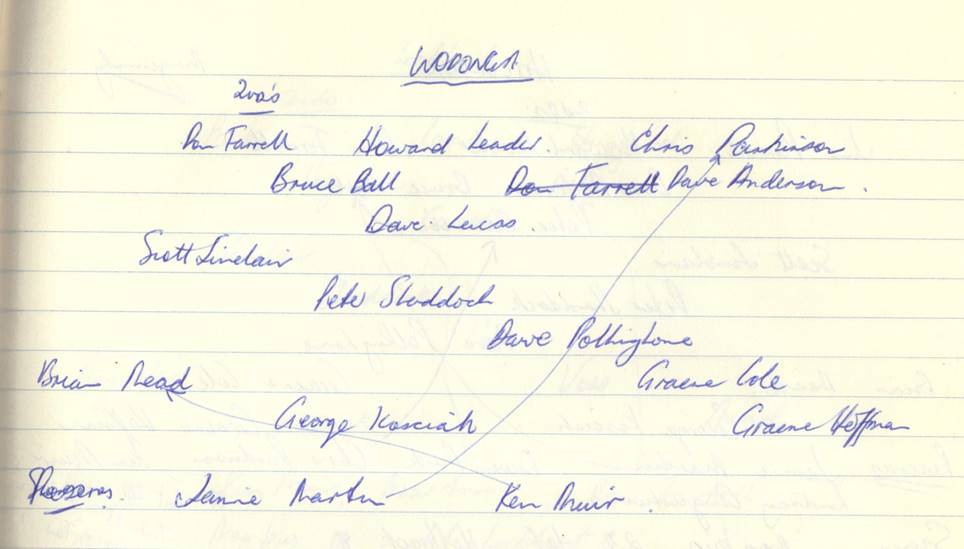 WODONGA
2nd's
Don Farrell Howard Leader. Chris Parkinson
Bruce Ball Don Farrell Dave Anderson.
Dave Lucas.
Scott Sinclair
Pete Studdock
Dave Pollington
Brian Read Graeme Cole
George Kosciak Graeme Hoffman
Reserves. Jamie Martin Ken Muir.